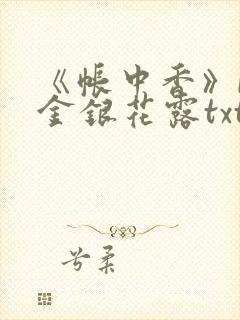 《帐中香》
金银花露txt
兮柔